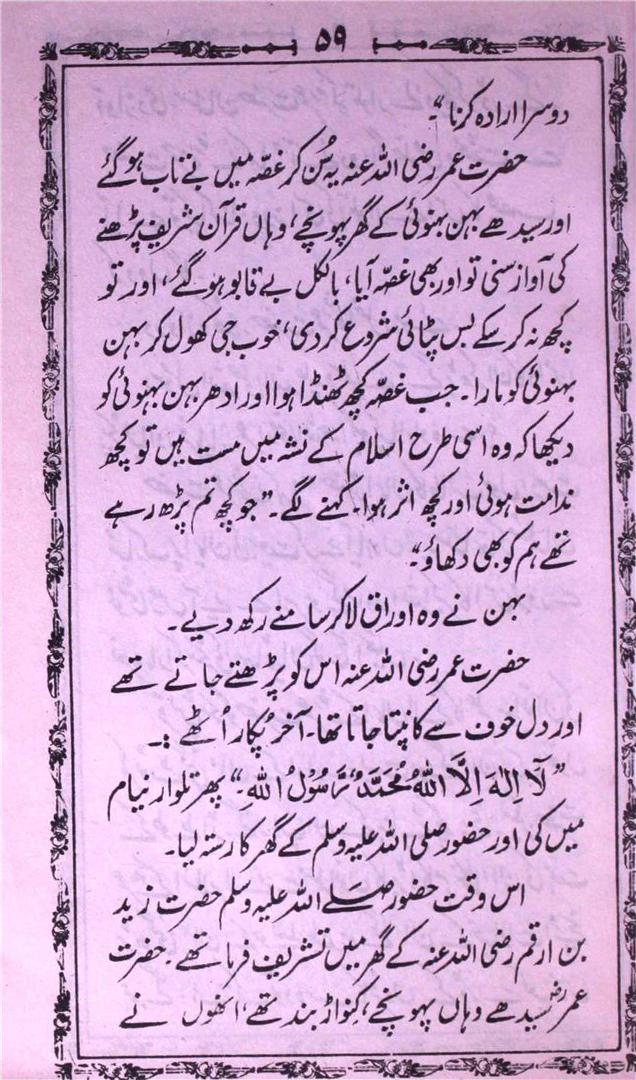 ۵۹
دوسرا ارادہ کرنا“۔
حضرت عمر رضی اللہ عنہ یہ سُن کر غصّہ میں بے تاب ہو گئے
اور سیدھے بہن بہنوئی کے گھر پہونچے، وہاں قرآن شریف پڑھنے
کی آواز سنی تو اور بھی غصّہ آیا، بالکل بے قابو ہو گئے، اور تو
کچھ نہ کر سکے بس پٹائی شروع کر دی، خوب جی کھول کر بہن
بہنوئی کو مارا۔ جب غصّہ کچھ ٹھنڈا ہوا اور ادھر بہن بہنوئی کو
دیکھا کہ وہ اسی طرح اسلام کے نشہ میں مست ہیں تو کچھ
ندامت ہوئی اور کچھ اثر ہوا۔ کہنے لگے۔ ”جو کچھ تم پڑھ رہے
تھے ہم کو بھی دکھاؤ“۔
بہن نے وہ اوراق لا کر سامنے رکھ دیے۔
حضرت عمر رضی اللہ عنہ اس کو پڑھتے جاتے تھے
اور دل خوف سے کانپتا جاتا تھا۔ آخر پُکار اُٹھے :۔
”لَا اِلٰهَ اِلَّا اللّٰهُ مُحَمَّدٌ رَّسُوْلُ اللّٰهِ“ پھر تلوار نیام
میں کی اور حضور صلی اللہ علیہ وسلم کے گھر کا رستہ لیا۔
اس وقت حضور صلے اللہ علیہ وسلم حضرت زید
بن ارقم رضی اللہ عنہ کے گھر میں تشریف فرما تھے۔ حضرت
عمرؓ سیدھے وہاں پہونچے، کِنواڑ بند تھے، انھوں نے